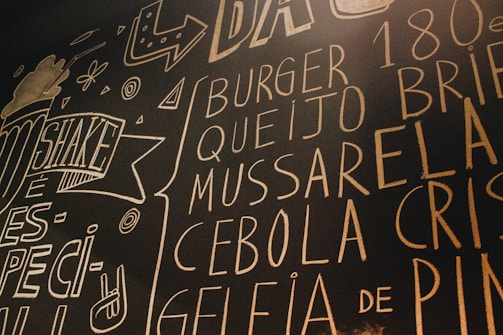 DA
BURGER 180
QUEIJO BRIE
MUSSARELA
CEBOLA CRIS
GELEIA DE PI
SHAKE
É
ES-
PECI-